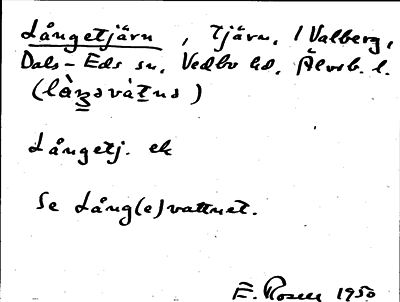 Långetjärn, tjärn, i Valberg,
Dals-Eds sn, Vedbo hd, Älvsb. l.
(làŋəvàtnə)
Långetj. ek
Se Lång(e)vattnet.
E. Rosell 1950